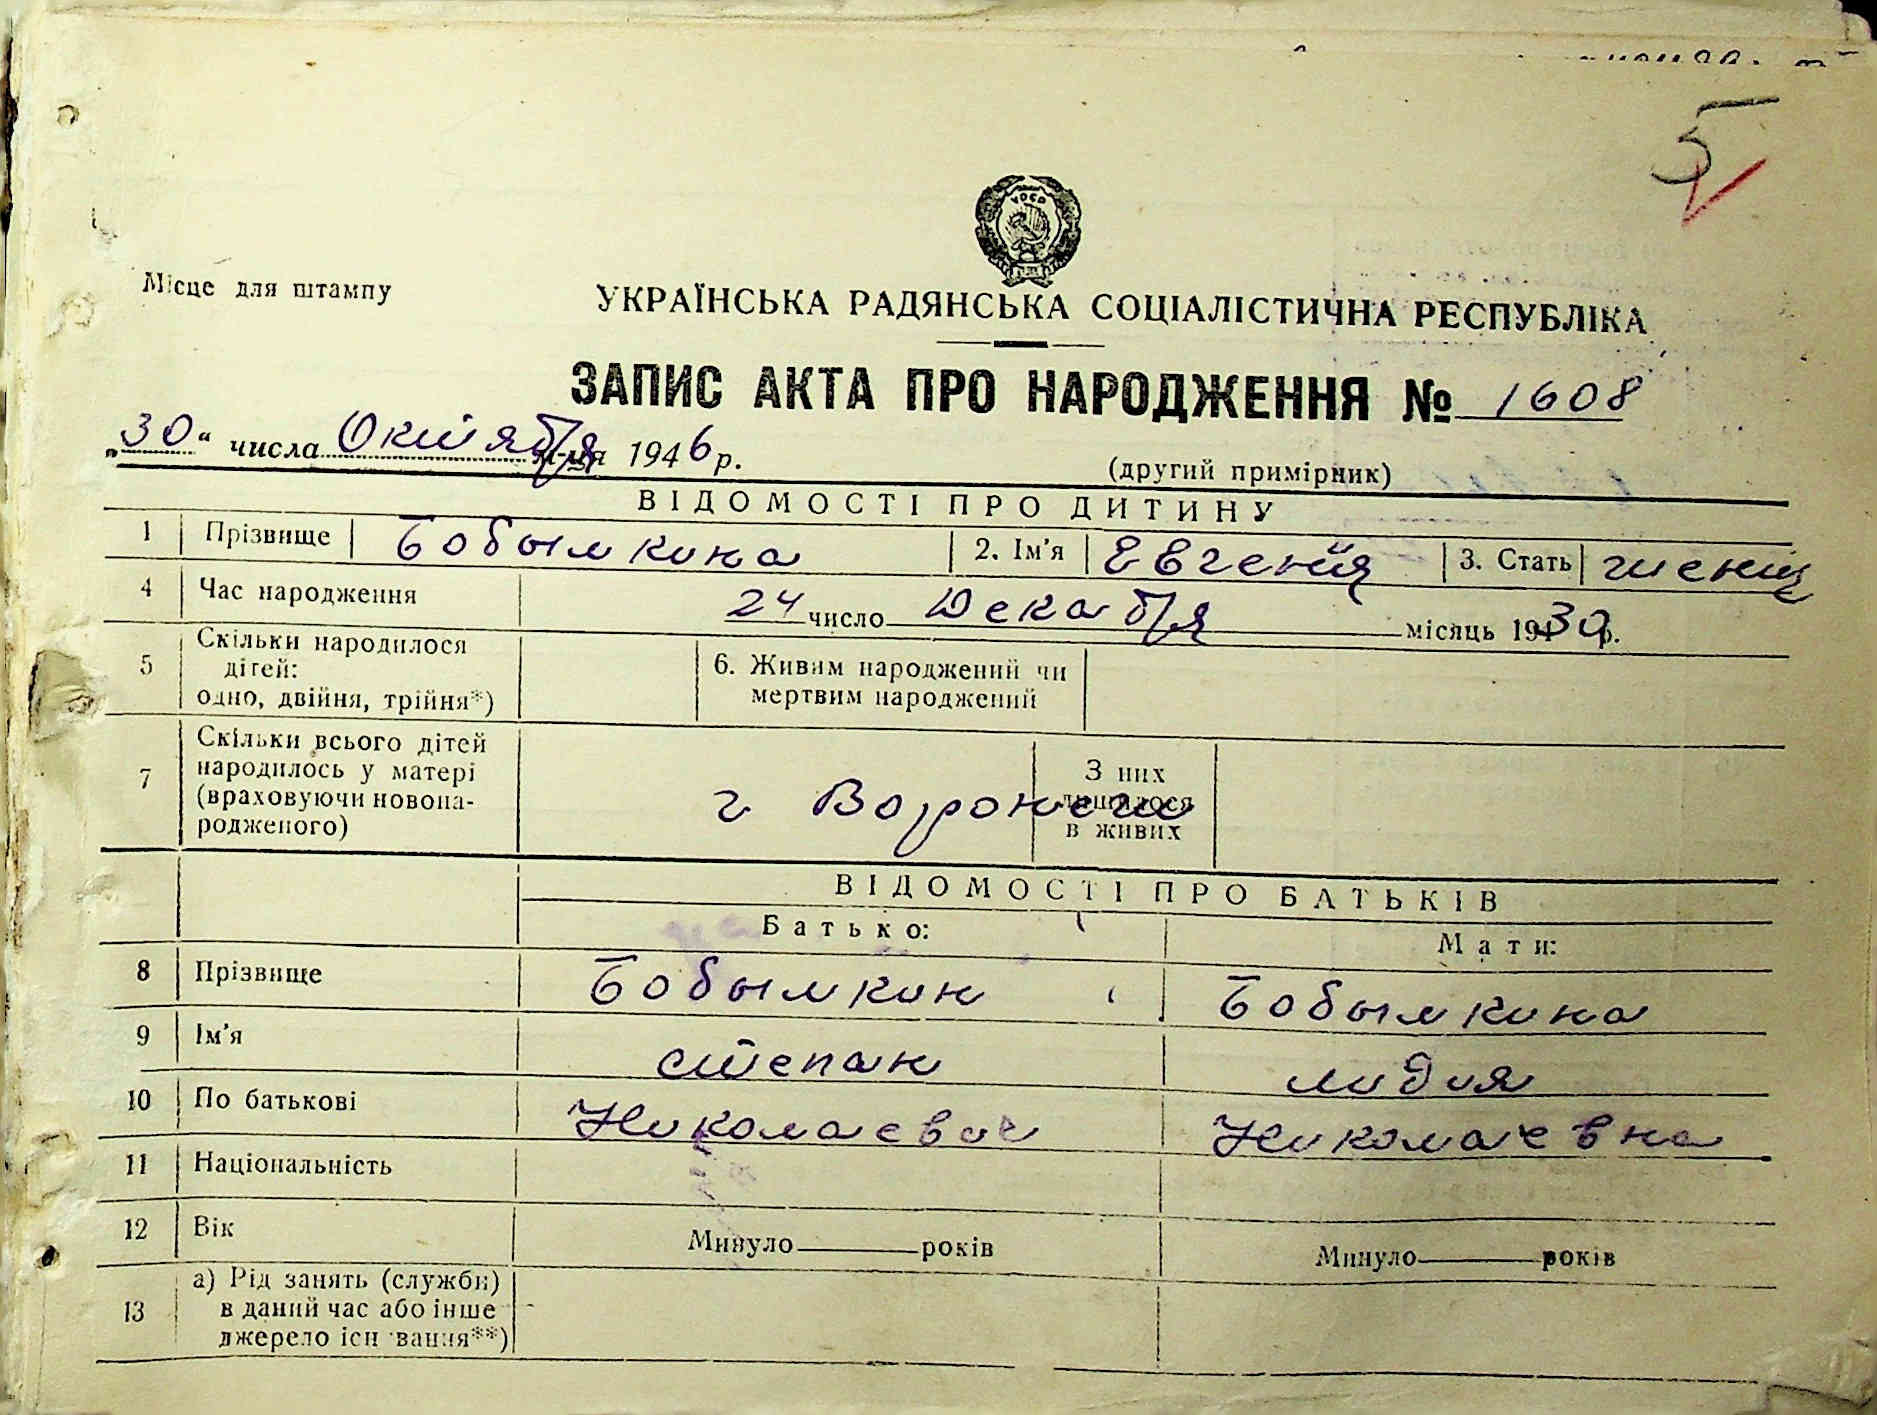 5
УРСР
Місце для штампу
УКРАЇНСЬКА РАДЯНСЬКА СОЦІАЛІСТИЧНА РЕСПУБЛІКА
ЗАПИС АКТА ПРО НАРОДЖЕННЯ № 1608
„30“ числа Октября м-ця 1946 р.
(другий примірник)
ВІДОМОСТІ ПРО ДИТИНУ
1 Прізвище Бобылкина 2. Ім'я Евгения 3. Стать женщ
4 Час народження 24 число Декабря місяць 1930 р.
5 Скільки народилося дітей: одно, двійня, трійня*) 6. Живим народжений чи мертвим народжений
7 Скільки всього дітей народилось у матері (враховуючи новонародженого) г Воронеж З них лишилося в живих
ВІДОМОСТІ ПРО БАТЬКІВ
Батько: Мати:
8 Прізвище Бобылкин Бобылкина
9 Ім'я Степан Лидия
10 По батькові Николаевич Николаевна
11 Національність
12 Вік Минуло років Минуло років
13 а) Рід занять (служби) в даний час або інше джерело існування**)